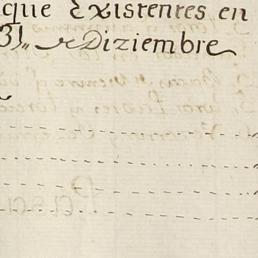 que Existentes en
31,, de Diziembre